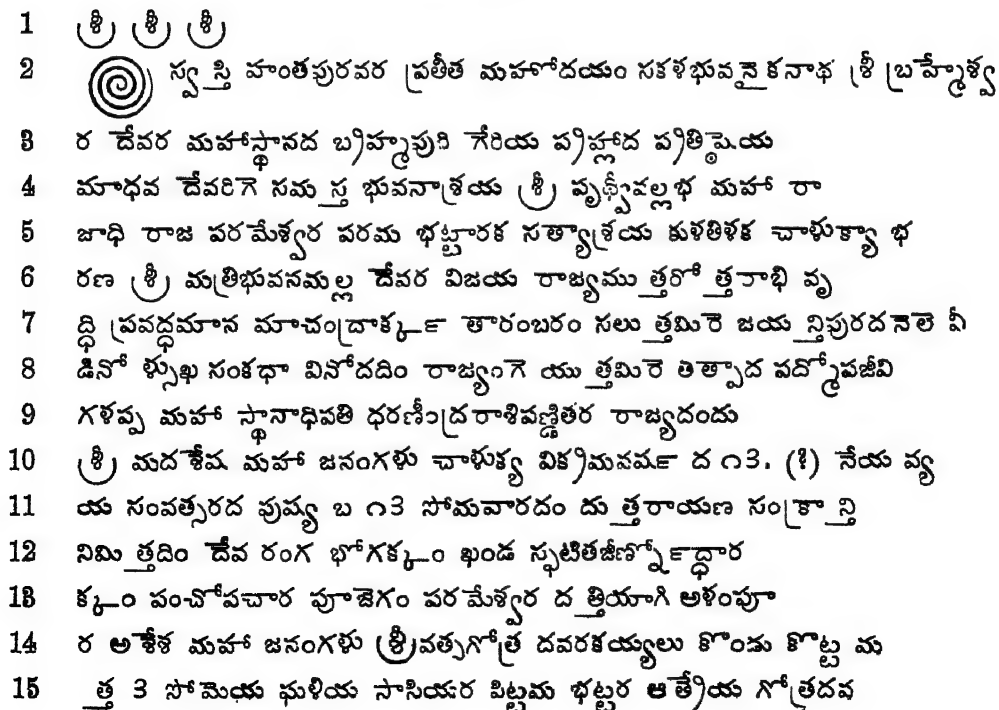 1 శ్రీ శ్రీ శ్రీ
2 స్వస్తి హంతపురవర ప్రతీత మహోదయం సకళభువనైకనాథ శ్రీ బ్రహ్మేశ్వ
3 ర దేవర మహాస్థానద బ్రిహ్మపురి గేరియ ప్రిహ్లాద ప్రతిష్ఠెయ
4 మాధవ దేవరిగె సమస్త భువనాశ్రయ శ్రీ పృథ్వీవల్లభ మహా రా
5 జాధి రాజ పరమేశ్వర పరమ భట్టారక సత్యాశ్రయ కుళతిళక చాళుక్యా భ
6 రణ శ్రీ మత్రిభువనమల్ల దేవర విజయ రాజ్యముత్తరోత్తరాభి వృ
7 ద్ధి ప్రవర్ద్ధమాన మాచంద్రార్క్క తారంబరం సలుత్తమిరె జయన్తిపురదనెలె వీ
8 డినోళ్సుఖ సంకథా వినోదదిం రాజ్యంగెయుత్తమిరె తిత్పాద పద్మోపజీవి
9 గళప్ప మహా స్థానాధిపతి ధరణీంద్రరాశిపణ్డితర రాజ్యదందు
10 శ్రీ మదశేష మహా జనంగళు చాళుక్య విక్రిమవర్ష ద ౧3. (కి) నేయ వ్య
11 య సంవత్సరద పుష్య బ ౧3 సోమవారదం దుత్తరాయణ సంక్రాన్తి
12 నిమిత్తదిం దేవ రంగ భోగక్కం ఖండ స్ఫటితజీర్ణ్నోద్ధార
13 క్కం పంచోపచార పూజెగం పరమేశ్వర దత్తియాగి అళంపూ
14 ర అశేశ మహా జనంగళు శ్రీవత్సగోత్ర దవరకయ్యలు కొండు కొట్ట మ
15 త్త 3 సోమెయ ఘళియ సాసియర పిట్టమ భట్టర ఆత్రేయ గోత్రదవ